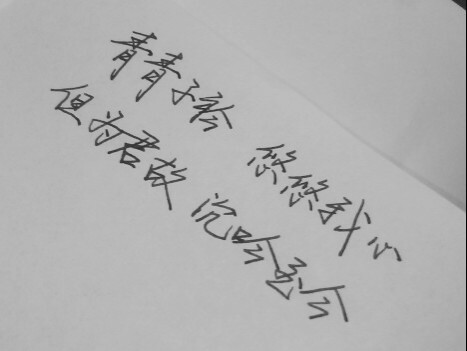 青青子衿 悠悠我心
但为君故 沉吟至今